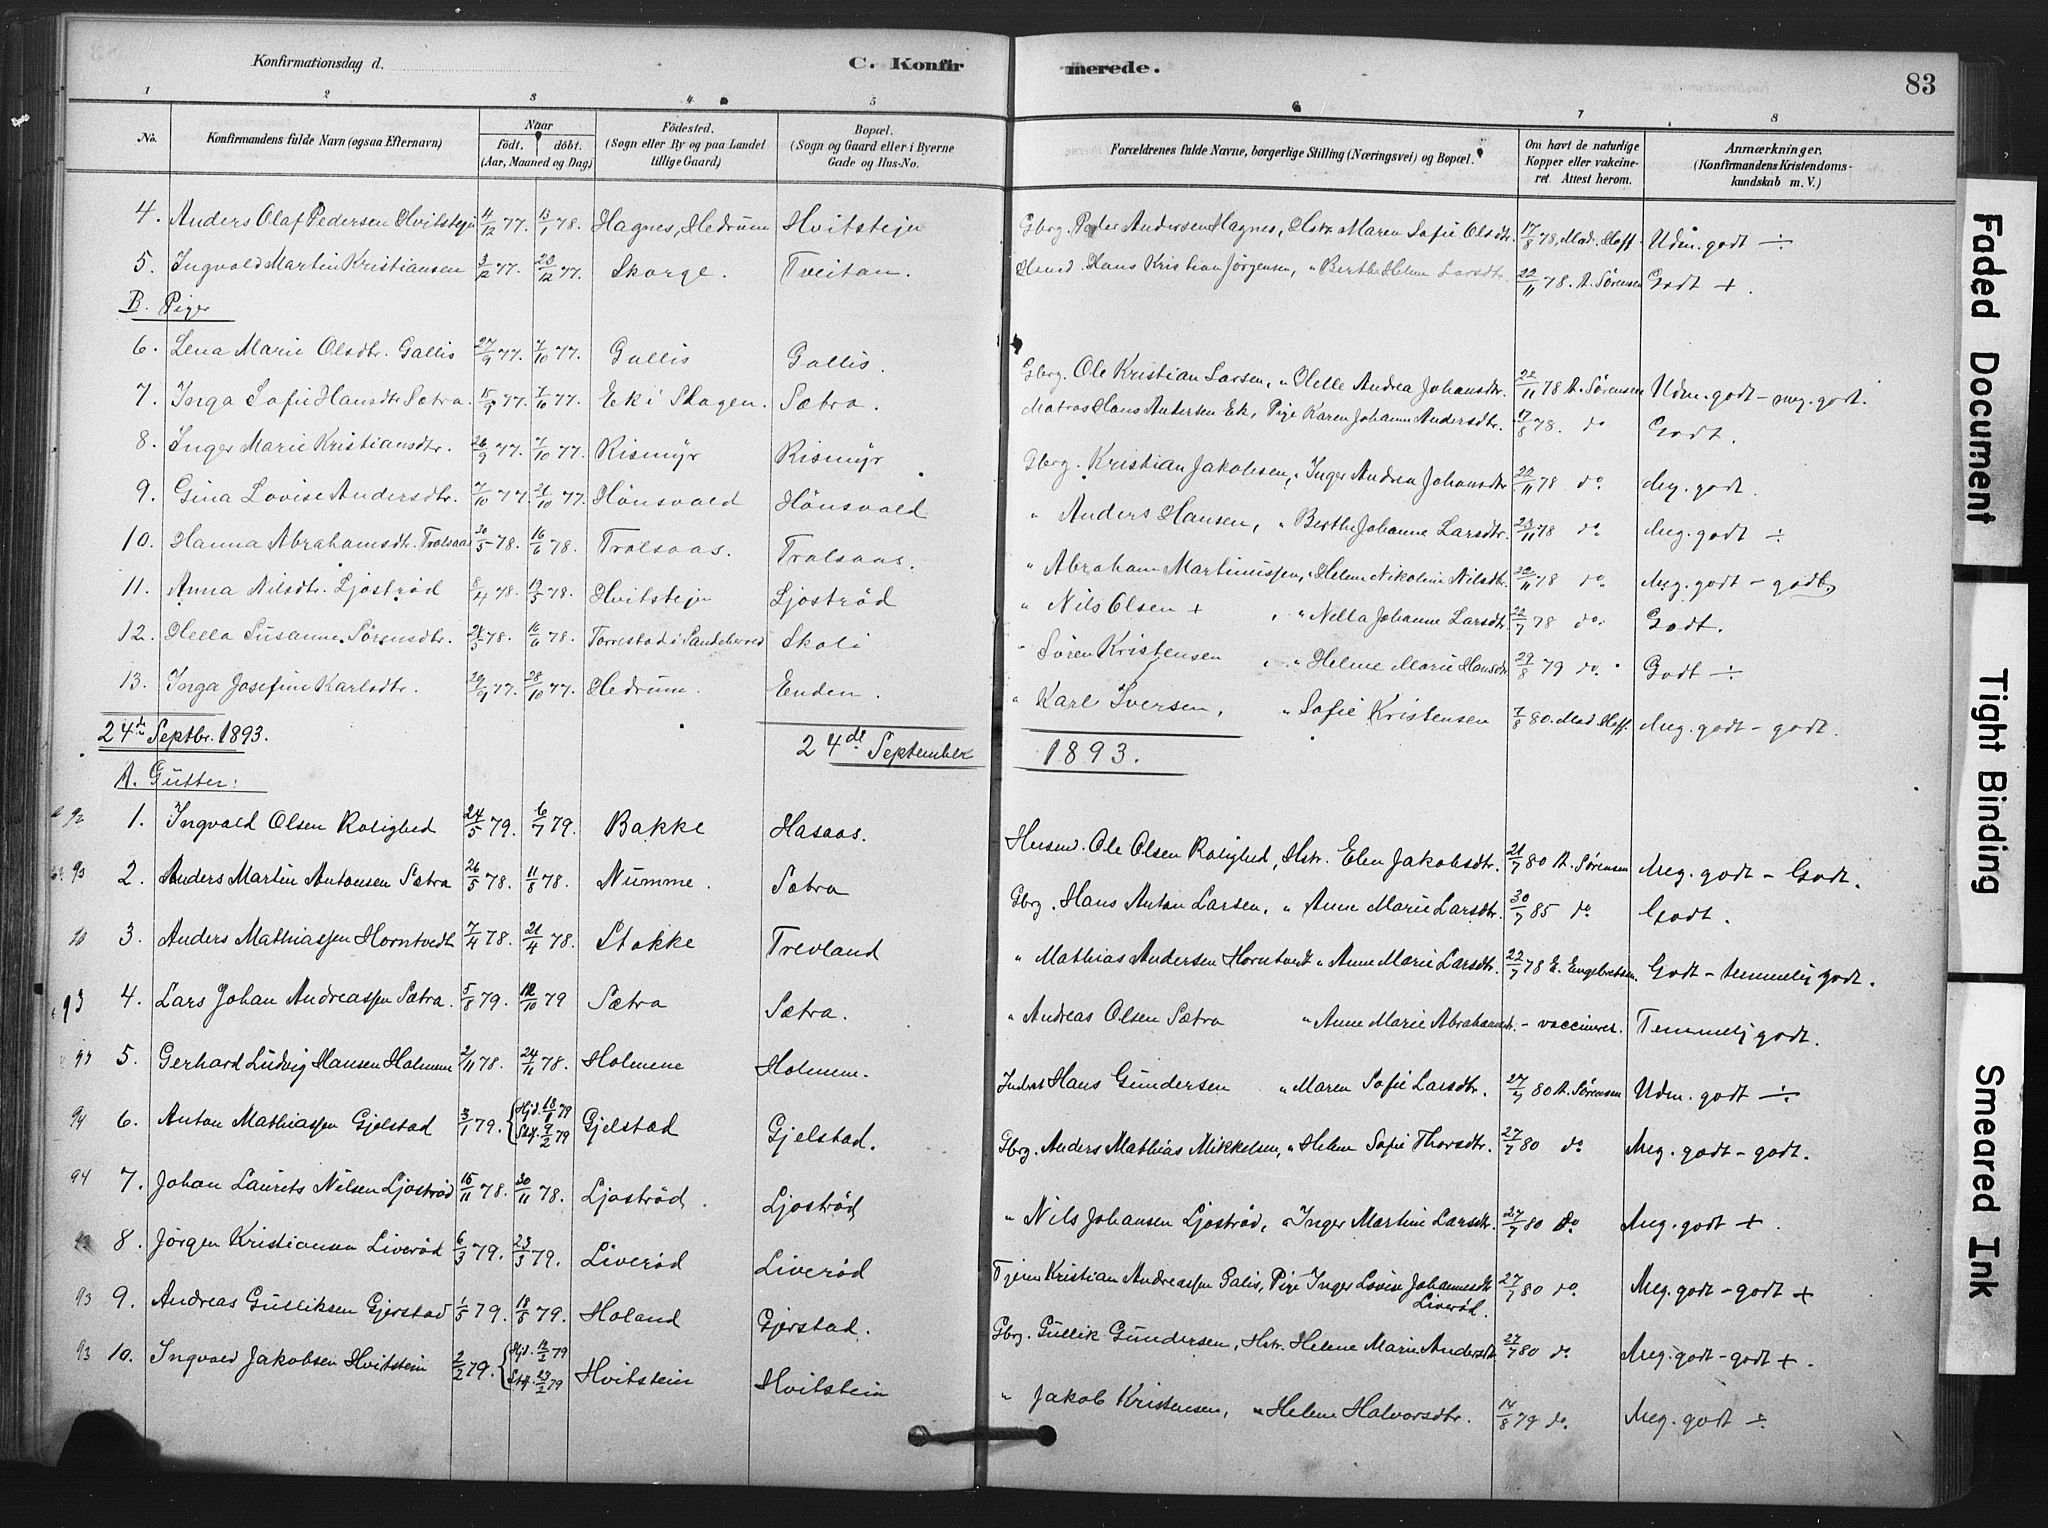 Konfirmationsdag d. C. Konfirmerede. 83
1 2 3 4 5 6 7 8
No. Konfirmandens fulde Navn (ogsaa Efternavn) Naar født. døbt. (Aar, Maaned og Dag) Födested. (Sogn eller By og paa Landet tillige Gaard) Bopæl. (Sogn og Gaard eller i Byerne Gade og Hus-No. Forældrenes fulde Navne, borgerlige Stilling (Næringsvei) og Bopæl. Om havt de naturlige Kopper eller vakcineret. Attest herom. Anmærkninger. (Konfirmandens Kristendomskundskab m. V.)
4. Anders Olaf Pedersen Hvitstejn 11/12 77. 13/1 78. Hagnes, Hedrum Hvitstejn Gbrg. Peder Andersen Hagnes, Hstr. Maren Sofie Olsdtr. 17/8 78. Mad. Hoff. Udm. godt ÷
5. Ingvald Martin Kristiansen 3/12 77. 23/12 77. Skorge. Tveitan. Hans Kristian Jörgensen, " Berthe Helene Larsdtr. 22/11 78. A. Sörensen Godt +.
B. Piger
6. Lena Marie Olsdtr. Gallis 27/9 77. 7/10 77. Gallis Gallis. Gbrg. Ole Kristian Larsen, " Helle Andrea Johansdtr. 22/11 78 A. Sörensen Udm. godt - meg. godt.
7. Inga Sofie Hansdtr Sætra. 15/9 77. 7/10 77. Ek i Skogen. Sætra. Matros Hans Andersen Ek, Pige Karen Johanne Andersdtr. 17/8 78. do Godt.
8. Inger Marie Kristiansdtr. 26/9 77. 7/10 77. Rismyr Rismyr Gbrg. Kristian Jakobsen, " Inger Andrea Johansdtr 22/11 78 do. Meg. godt.
9. Gina Lovise Andersdtr. 7/10 77. 21/10 77. Hönsvald Hönsvald " Anders Hansen, " Berthe Johanne Larsdtr. 23/11 78 do Meg. godt ÷
10. Hanna Abrahamsdtr. Trolsaas 20/5 78. 16/6 78. Trolsaas. Trolsaas. " Abraham Martinussen, " Helene Nikoline Nilsdtr. 22/11 78 do. Meg. godt - godt.
11. Anna Nilsdtr. Ljoströd 8/4 78. 19/5 78. Hvitstejn Ljoströd " Nils Olsen + " Nella Johanne Larsdtr. 22/7 78 do. Godt.
12. Hella Susanne Sörensdtr. 21/5 78. 16/6 78. Torrestad i Sandeherred Skoli " Sören Kristensen " Helene Marie Hansdtr 29/8 79 do. Godt ÷
13. Inga Josefine Karlsdtr. 29/9 77. 28/10 77. Hedrum. Enden. " Karl Iversen, " Sofie Kristensen 7/8 80. Mad. Hoff. Meg. godt - godt.
24de Septbr. 1893. 24de September 1893.
A. Gutter:
92 1. Ingvald Olsen Rolighed 24/5 79. 6/7 79. Bakke Hasaas. Husmd. Ole Olsen Rolighed, Hstr. Elen Jakobsdtr. 21/7 80 A. Sörensen Meg. godt - Godt.
93 2. Anders Martin Antonsen Sætra 26/5 78. 11/8 78. Numme. Sætra Gbrg. Hans Anton Larsen, " Anne Marie Larsdtr. 30/7 85 do Godt.
3. Anders Mathiassen Horntvedt 7/4 78. 21/4 78. Stokke Trevland " Mathias Andersen Horntvedt " Anne Marie Larsdtr. 22/7 78 E. Engebretsen. Godt - temmelig godt.
93 4. Lars Johan Andreassen Sætra. 5/8 79. 12/10 79 Sætra Sætra. " Andreas Olsen Sætra " Anne Marie Abrahamsdtr. - vaccineret. Temmelig godt.
5. Gerhard Ludvig Hansen Holmene 2/11 78. 24/11 78. Holmene Holmene. Hans Gundersen " Maren Sofie Larsdtr. 27/7 80 A. Sörensen Udm. godt ÷.
94 6. Anton Mathiassen Gjelstad 3/1 79. Hjd. 18/1 79 Gjelstad Gjelstad. Gbrg. Anders Mathias Mikkelsen, " Helene Sofie Thorsdtr. 27/7 80 do Meg. godt - godt.
9/2 79
94 7. Johan Laurits Nilsen Ljoströd 15/11 78. 30/11 78. Ljoströd. Ljoströd " Nils Johansen Ljoströd, " Inger Martine Larsdtr. 27/7 80 do Meg. godt +.
8. Jörgen Kristiansen Liveröd 6/3 79. 23/3 79. Liveröd Liveröd Kristian Andreassen Galis, Pige Inger Lovise Johannesdtr 27/7 80 do. Meg. godt - godt +
Liveröd.
93 9. Andreas Gulliksen Gjerstad 1/5 79. 18/5 79. Holand Gjerstad. Gbrg. Gullik Gundersen, Hstr. Helene Marie Andersdtr 27/7 80 do Meg. godt - godt +.
93 10. Ingvald Jakobsen Hvitstein 2/2 79. Hjd. 12/2 79 Hvitstein Hvitstein " Jakob Kristensen, " Helene Halvorsdtr. 14/8 79 do. Meg. godt ÷
23/2 79
Faded Document
Tight Binding
Smeared Ink